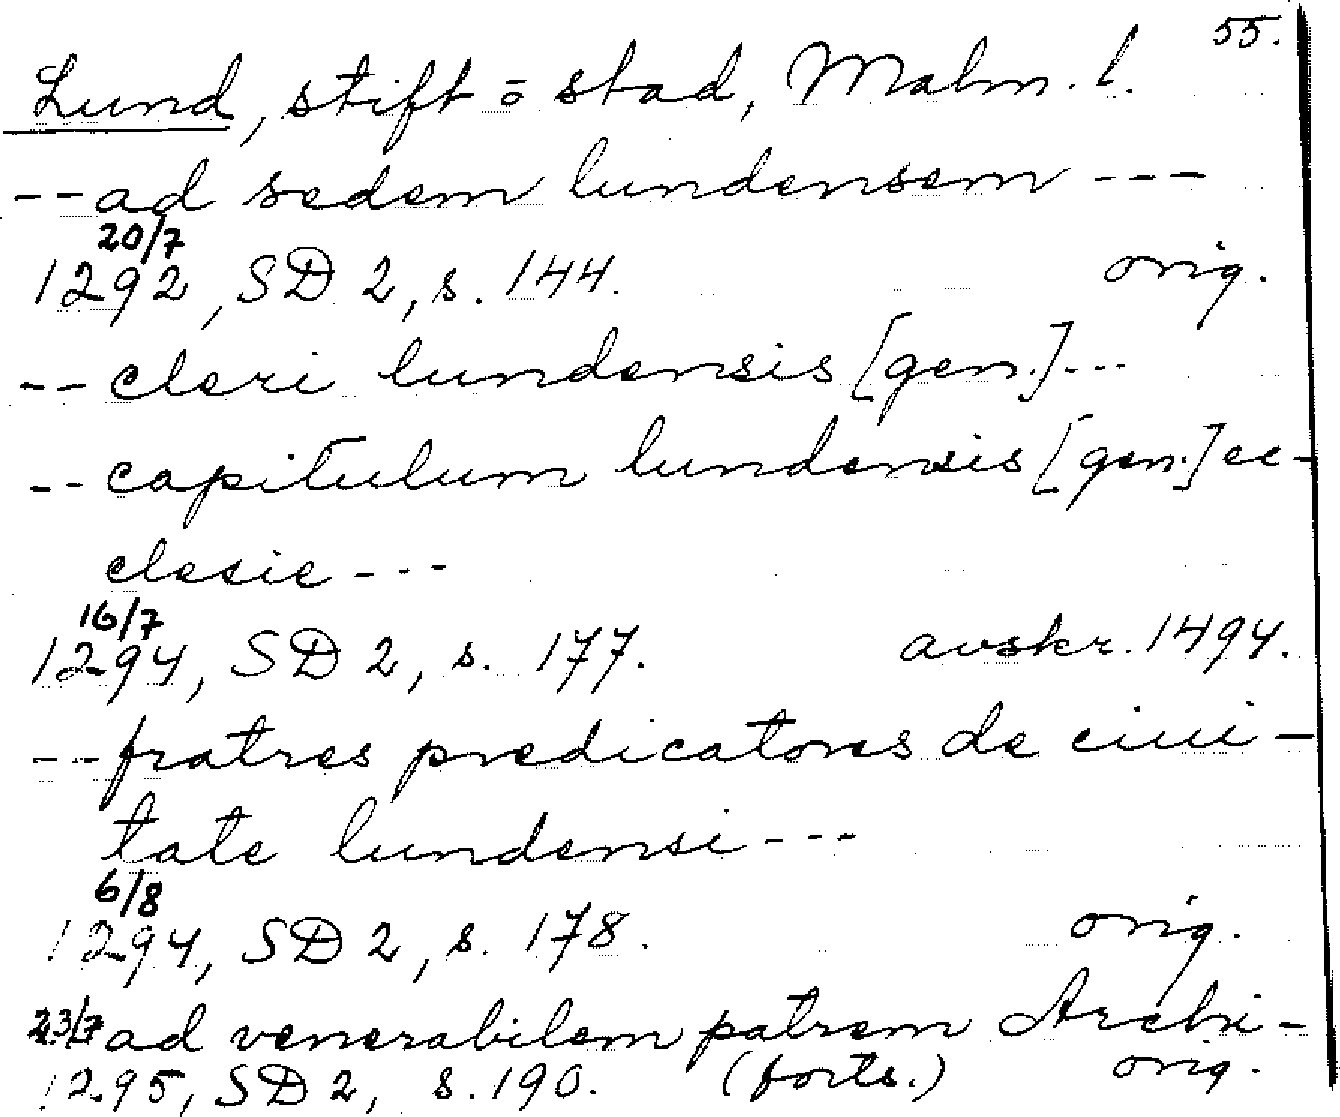 55.
Lund, stift = stad, Malm. l.
-- ad sedem lundensem ---
20/7
1292, SD 2, s. 144. orig.
-- cleri lundensis [gen.] ---
-- capitulum lundensis [gen.] ec-
clesie ---
16/7
1294, SD 2, s. 177. avskr. 1494.
-- fratres predicatores de ciui-
tate lundensi ---
6/8
1294, SD 2, s. 178. orig.
23/7 ad venerabilem patrem Archi-
1295, SD 2, s. 190. (forts.) orig.